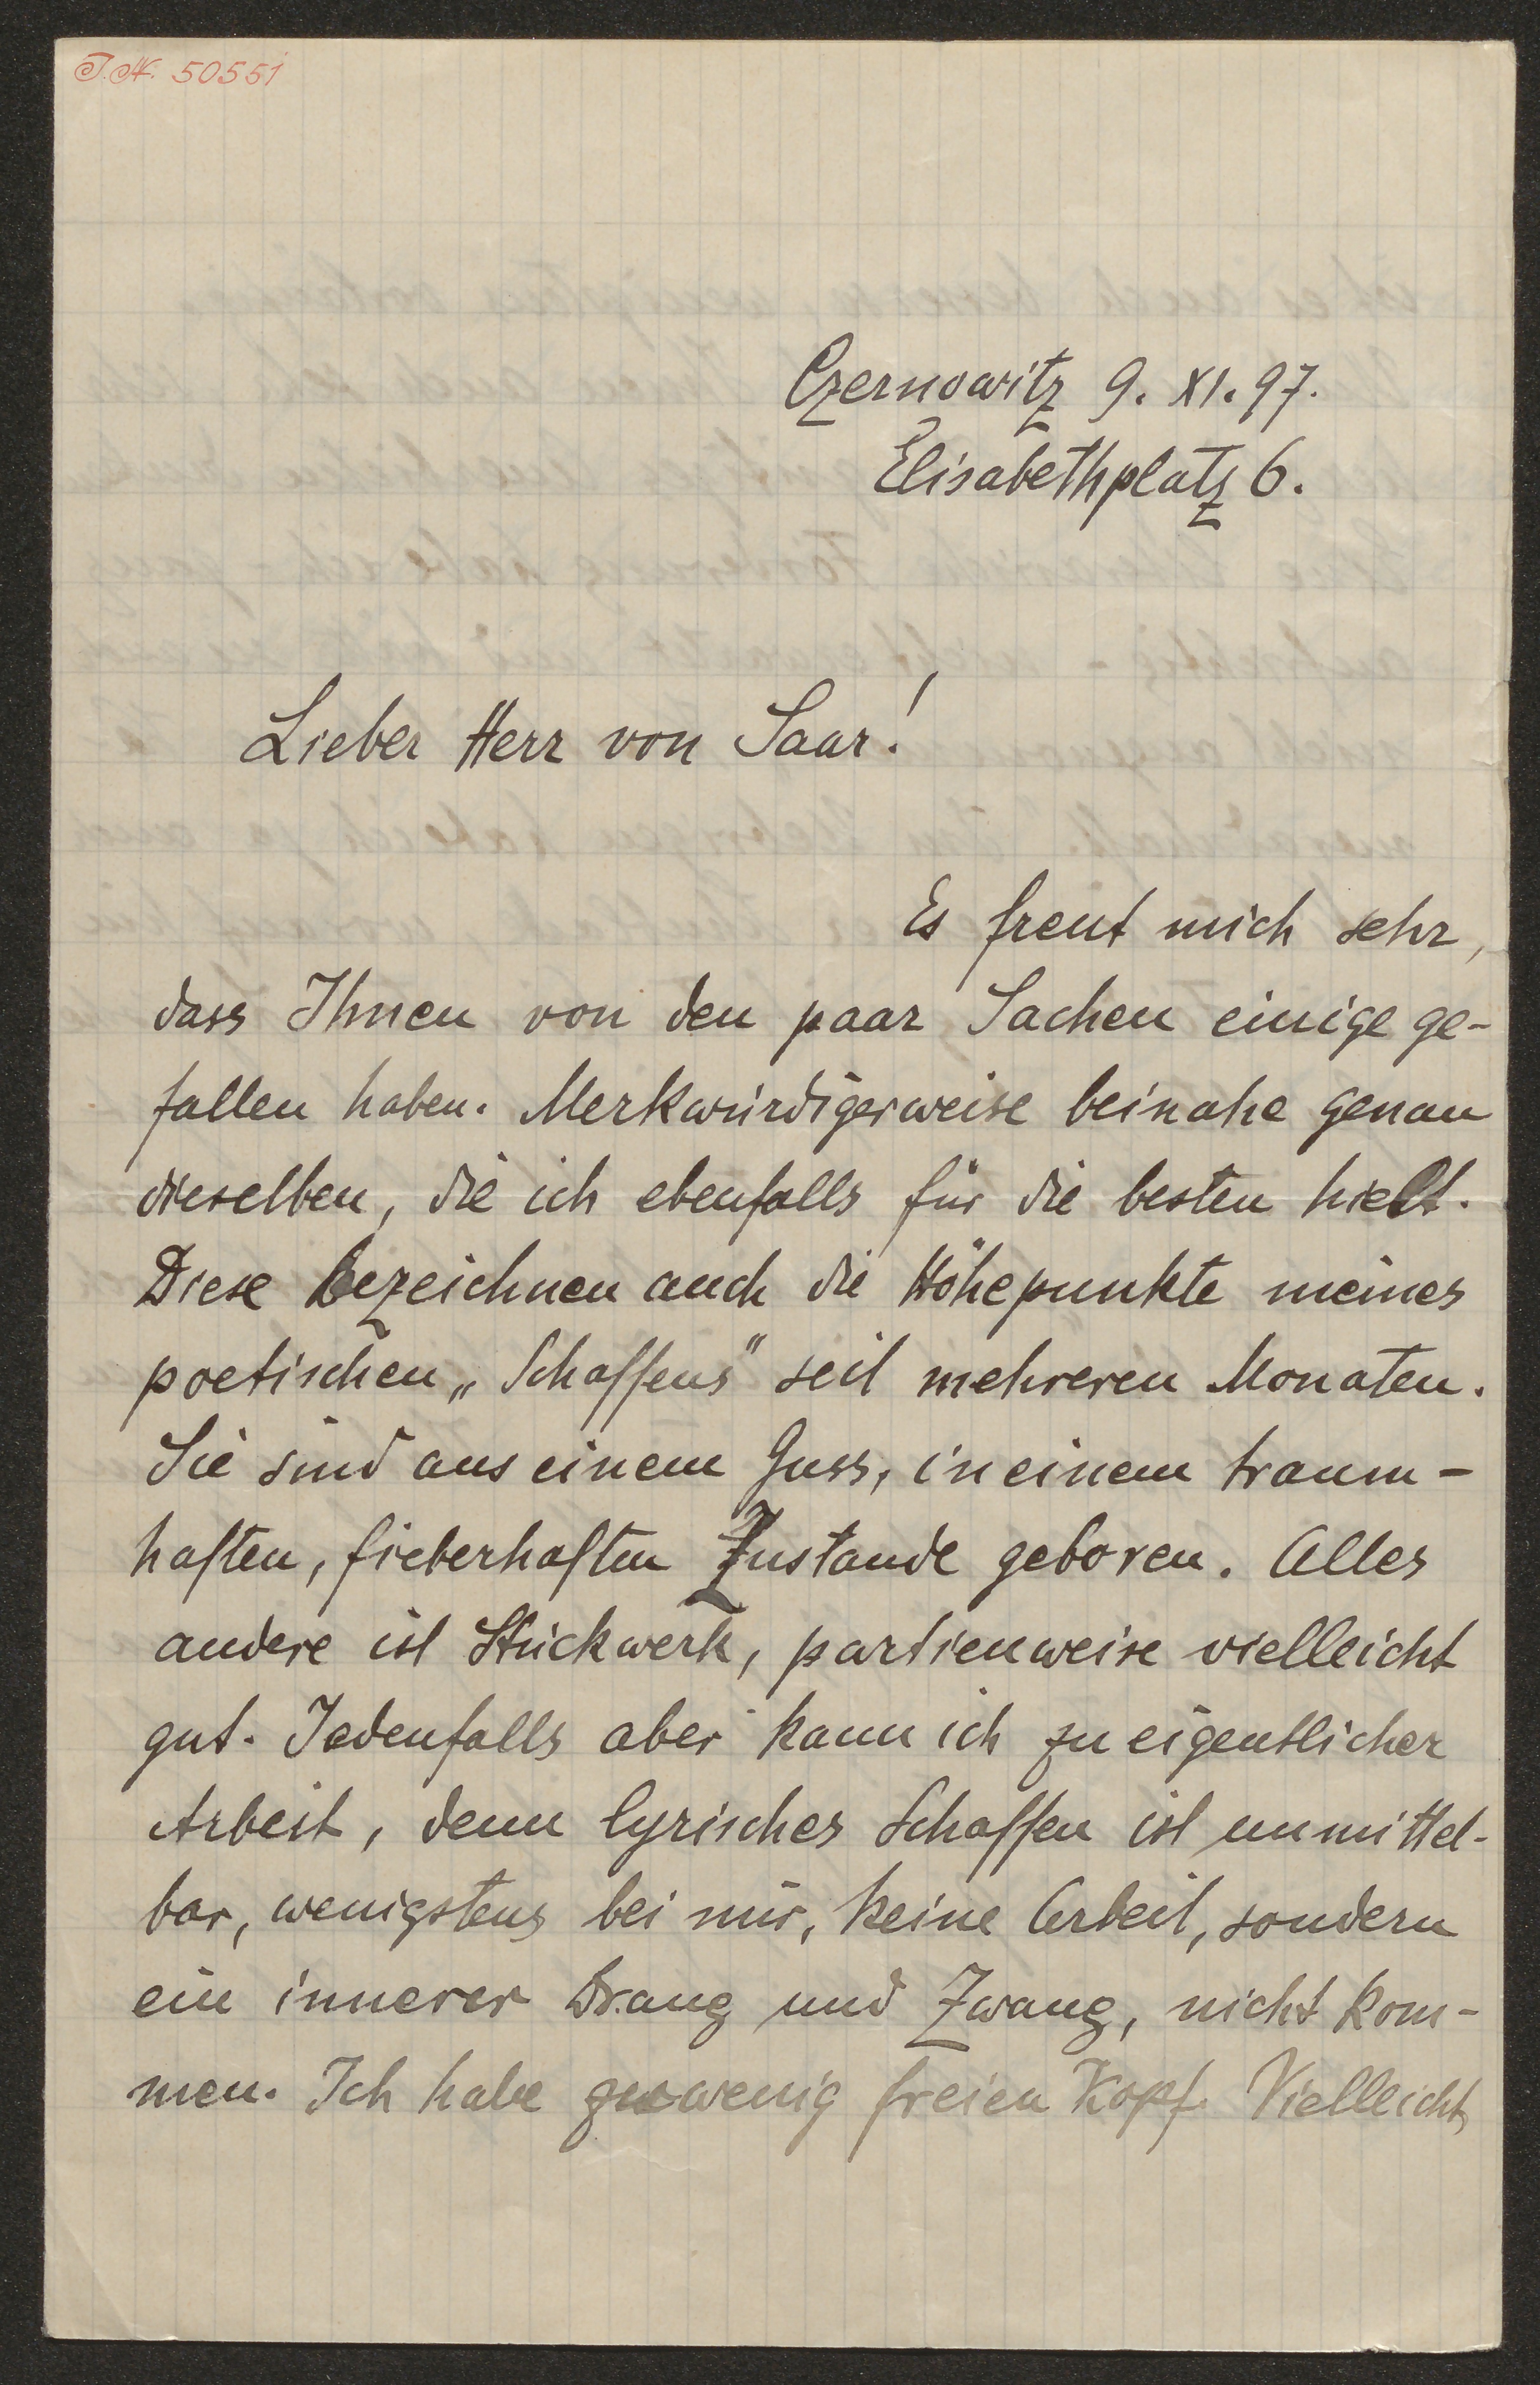 J.N. 50551
Czernowitz 9. XI. 97.
Elisabethplatz 6.
Lieber Herr von Saar!
Es freut mich sehr,
dass Ihnen von den paar Sachen einige ge-
fallen haben. Merkwürdigerweise beinahe genau
dieselben, die ich ebenfalls für die besten hielt.
Diese bezeichnen auch die Höhepunkte meines
poetischen „Schaffens" seit mehreren Monaten.
Sie sind aus einem Guss, in einem traum-
haften, fieberhaften Zustande geboren. Alles
andere ist Stückwerk, partienweise vielleicht
gut. Jedenfalls aber kann ich zu eigentlicher
Arbeit, denn lyrisches Schaffen ist unmittel-
bar, wenigstens bei mir, keine Arbeit, sondern
ein innerer Drang und Zwang, nicht kom-
men. Ich habe zu wenig freien Kopf. Vielleicht